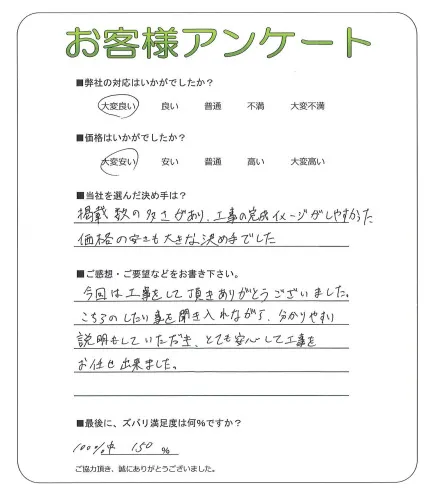 お客様アンケート
■弊社の対応はいかがでしたか?
大変良い 良い 普通 不満 大変不満
■価格はいかがでしたか?
大変安い 安い 普通 高い 大変高い
■当社を選んだ決め手は?
掲載数の多さがあり、工事の完成イメージがしやすかった
価格の安さも大きな決め手でした
■ご感想・ご要望などをお書き下さい。
今回は工事をして頂きありがとうございました。
こちらのしたい事を聞き入れながら、分かりやすい
説明もしていただき、とても安心して工事を
お任せ出来ました。
■最後に、ズバリ満足度は何%ですか?
100%中 150 %
ご協力頂き、誠にありがとうございました。